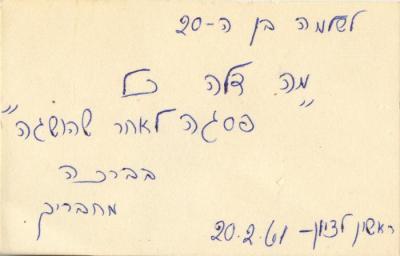 לשלמה בן ה-20
מה דלה כל
"פסגה לאחר שהושגה"
בברכה
מחבריך
ראשון לציון- 20.2.61